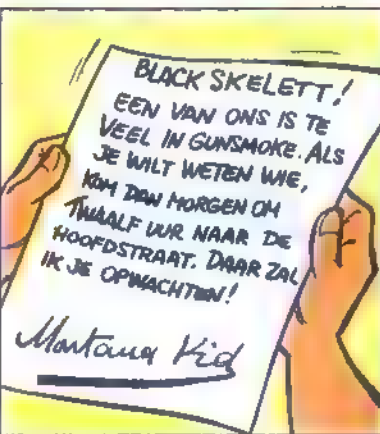 BLACK SKELETT!
EEN VAN ONS IS TE
VEEL IN GUNSMOKE. ALS
JE WILT WETEN WIE,
KOM DAN MORGEN OM
TWAALF UUR NAAR DE
HOOFDSTRAAT. DAAR ZAL
IK JE OPWACHTEN!
Montana Kid